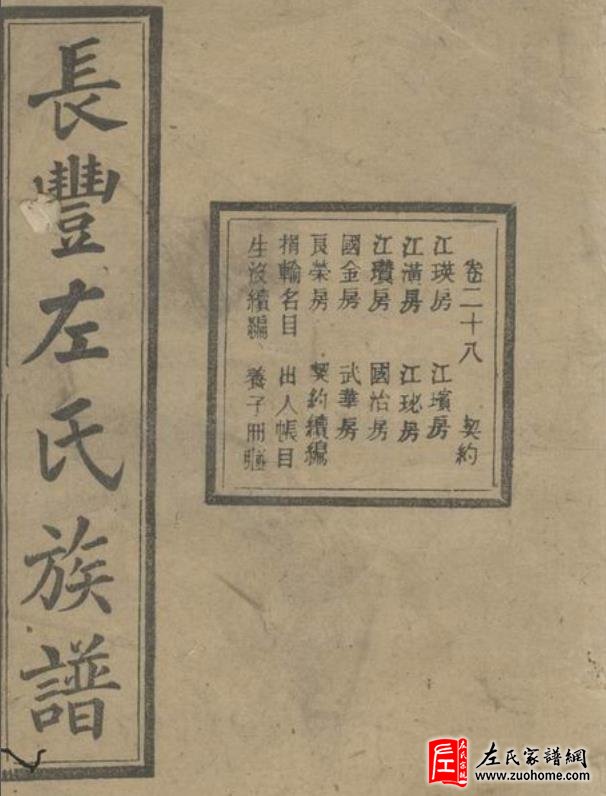 長豐左氏族譜
卷二十八 契約
江瑛房 江璸房
江潢房 江珌房
江瓚房 國治房
國金房 武華房
良榮房 契約續編
捐輸名目 出入帳目
生沒續編、養子冊
左氏家譜網
www.zuohome.com